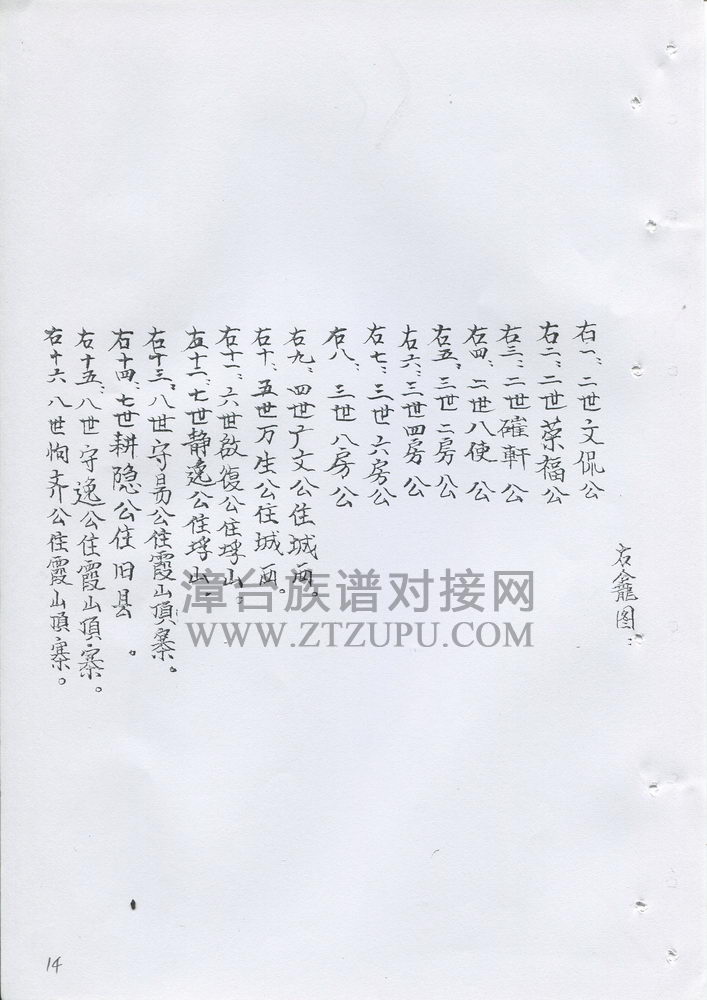 右龕图：
右一、二世文侃公
右二、二世荣福公
右三、二世確軒公
右四、二世八使公
右五、三世二房公
右六、三世四房公
右七、三世六房公
右八、三世八房公
右九、四世广文公住城西。
右十、五世万生公住城西。
右十一、六世啟復公住埓山。
右十二、七世静逸公住埓山、
右十三、八世守易公住霞山頂寨。
右十四、七世耕隐公住旧县。
右十五、八世守逸公住霞山頂寨。
右十六、八世恂齐公住霞山頂寨。
漳台族谱对接网
WWW.ZTZUPU.COM
14